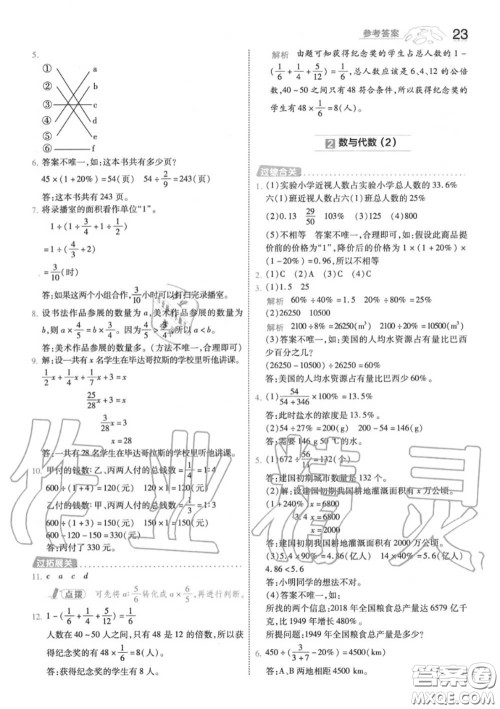 参考答案 23
5.
① a
② b
③ c
④ d
⑤ e
⑥ f
6. 答案不唯一,如:这本书共有多少页?
45×(1+20%)=54(页) 54÷2/9=243(页)
答:这本书共有 243 页。
7. 将录播室的面积看作单位“1”。
1÷(1÷3/4+1÷1/2)
=1÷(4/3+2)
=3/10(时)
答:如果这两个小组合作,3/10小时可以打扫完录播室。
8. 设书法作品参展的数量为 a,美术作品参展的数量为
b,则 a×4/5=b×3/4。因为4/5>3/4,所以 a<b。
答:美术作品参展的数量多。(方法不唯一,合理即可)
9. 解:设一共有 x 名学生在毕达哥拉斯的学校里听他讲课。
1/2x+1/4x+1/7x+3=x
25/28x+3=x
3/28x=3
x=28
答:一共有 28 名学生在毕达哥拉斯的学校里听他讲课。
10. 甲付的钱数:乙、丙两人付的总钱数=1/4=1:4
600÷(1+4)=120(元) 120×1=120(元)
乙付的钱数:甲、丙两人付的总钱数=1/3=1:3
600÷(1+3)=150(元) 150×1=150(元)
600-120-150=330(元)
答:丙付了 330 元。
过拓展关
11. c a c d
点拨 可先将 a÷5/6转化成 a×6/5,再进行判断。
12. 1-(1/6+1/4+5/12)=1/6
人数在 40~50 人之间,只有 48 是 12 的倍数,所以获得纪念奖的学生有 48×1/6=8(人)。
答:获得纪念奖的学生有 8 人。
解析 由题可知获得纪念奖的学生占总人数的 1-
(1/6+1/4+5/12)=1/6,总人数应该是 6、4、12 的公倍
数,40~50 之间只有 48 符合条件,所以获得纪念奖的
学生有 48×1/6=8(人)。
2 数与代数(2)
1. (1)实验小学近视人数占实验小学总人数的 33.6%
六(1)班近视人数占六(1)班总人数的 25%
(2)0.13 29/50 (3)103 (4)22
(5)不相等 答案不唯一,合理即可,如:假设此商品提
价前的价格为“1”,降价后的价格为 1×(1+20%)×
(1-20%)=0.96,所以不相等。
2. (1)C (2)A (3)C (4)D
3. (1)1.5 25
解析 60%÷40%=1.5 20%÷80%=25%
(2)26250 10500
解析 2100÷8%=26250(m³)
(3)答案不唯一,如:美国的人均水资源占有量比巴西
少百分之几?
答:美国的人均水资源占有量比巴西少 60%。
4. (1)54/(54+346)×100%=13.5%
答:此时盐水的浓度是 13.5%。
答:需要 146 g 50 ℃的水。
答:建国初期城市数量是 132 个。
(2)解:设建国初期我国耕地灌溉面积有 x 万公顷。
x=2000
答:建国初期我国耕地灌溉面积有 2000 万公顷。
答:小明同学的想法不对。
(4)答案不唯一,如:
所找的两个信息:2018 年全国粮食总产量达 6579 亿千
克,比 1949 年增长 480%。
所提问题:1949 年全国粮食总产量是多少?
6. 450÷(3/(3+7)-20%)=4500(km)
答:A、B 两地相距 4500 km。